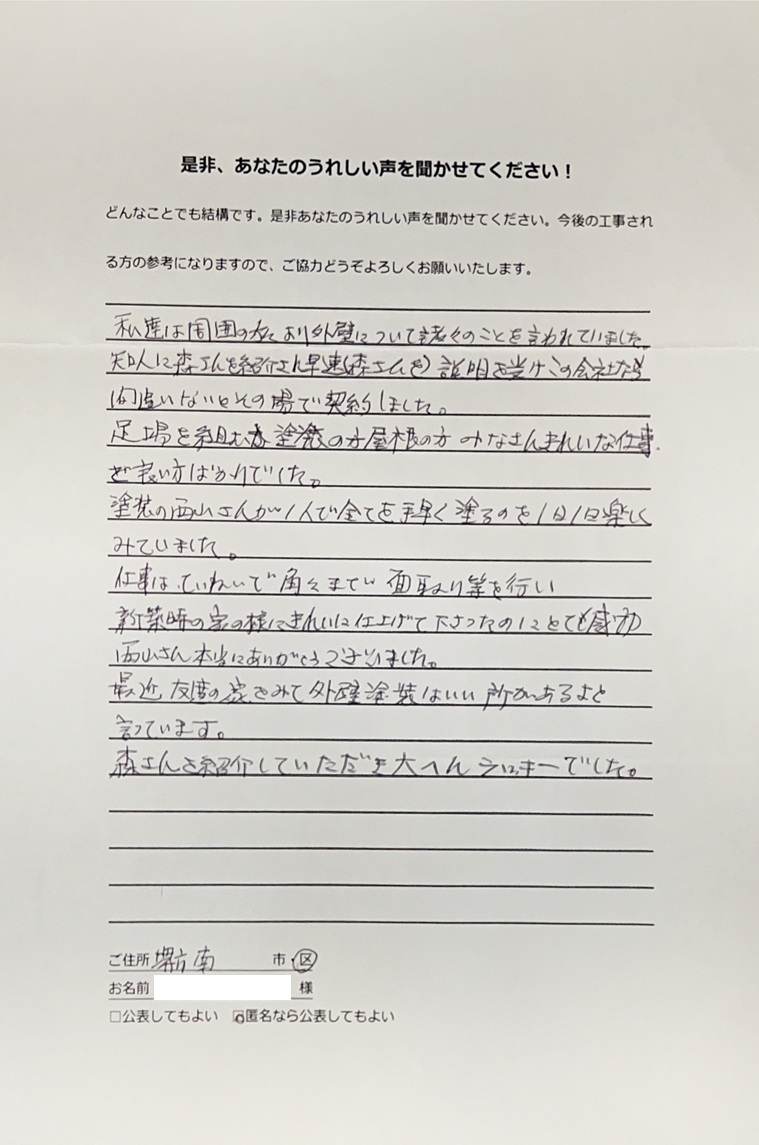 是非、あなたのうれしい声を聞かせてください！
どんなことでも結構です。是非あなたのうれしい声を聞かせてください。今後の工事され
る方の参考になりますので、ご協力どうぞよろしくお願いいたします。
私達は周囲の方より外壁について諸々のことを言われていました。
知人に森さんを紹介され早速(森さんを)説明を受けこの会社なら
間違いないとその場で契約しました。
足場を組む方塗装の方屋根の方みなさんきれいな仕事
で良い方ばかりでした。
塗装の西山さんが1人で全てを手早く塗るのを1日1日楽しく
みていました。
仕事はていねいで角々まで面取り等を行い
新築時の家の様にきれいに仕上げて下さったのにとても感動
西山さん本当にありがとうございました。
最近友達の家をみて外壁塗装はいい所があるよと
言っています。
森さんを紹介していただき大へんラッキーでした。
ご住所 堺市 南 市・区
お名前 様
□公表してもよい ☑匿名なら公表してもよい